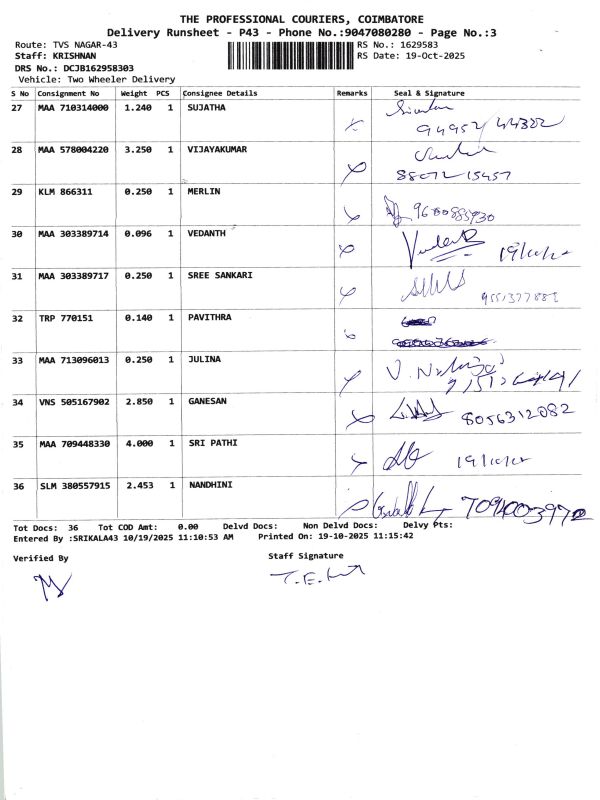 THE PROFESSIONAL COURIERS, COIMBATORE
Delivery Runsheet - P43 - Phone No.:9047080280 - Page No.:3
Route: TVS NAGAR-43 RS No.: 1629583
Staff: KRISHNAN RS Date: 19-Oct-2025
DRS No.: DCJB162958303
Vehicle: Two Wheeler Delivery
S No Consignment No Weight PCS Consignee Details Remarks Seal & Signature
27 MAA 710314000 1.240 1 SUJATHA
94952 44322
28 MAA 578004220 3.250 1 VIJAYAKUMAR
88072 15457
29 KLM 866311 0.250 1 MERLIN
30 MAA 303389714 0.096 1 VEDANTH
31 MAA 303389717 0.250 1 SREE SANKARI
32 TRP 770151 0.140 1 PAVITHRA
33 MAA 713096013 0.250 1 JULINA
34 VNS 505167902 2.850 1 GANESAN
8056312082
35 MAA 709448330 4.000 1 SRI PATHI
36 SLM 380557915 2.453 1 NANDHINI
Tot Docs: 36 Tot COD Amt: 0.00 Delvd Docs: Non Delvd Docs: Delvy Pts:
Entered By :SRIKALA43 10/19/2025 11:10:53 AM Printed On: 19-10-2025 11:15:42
Verified By Staff Signature